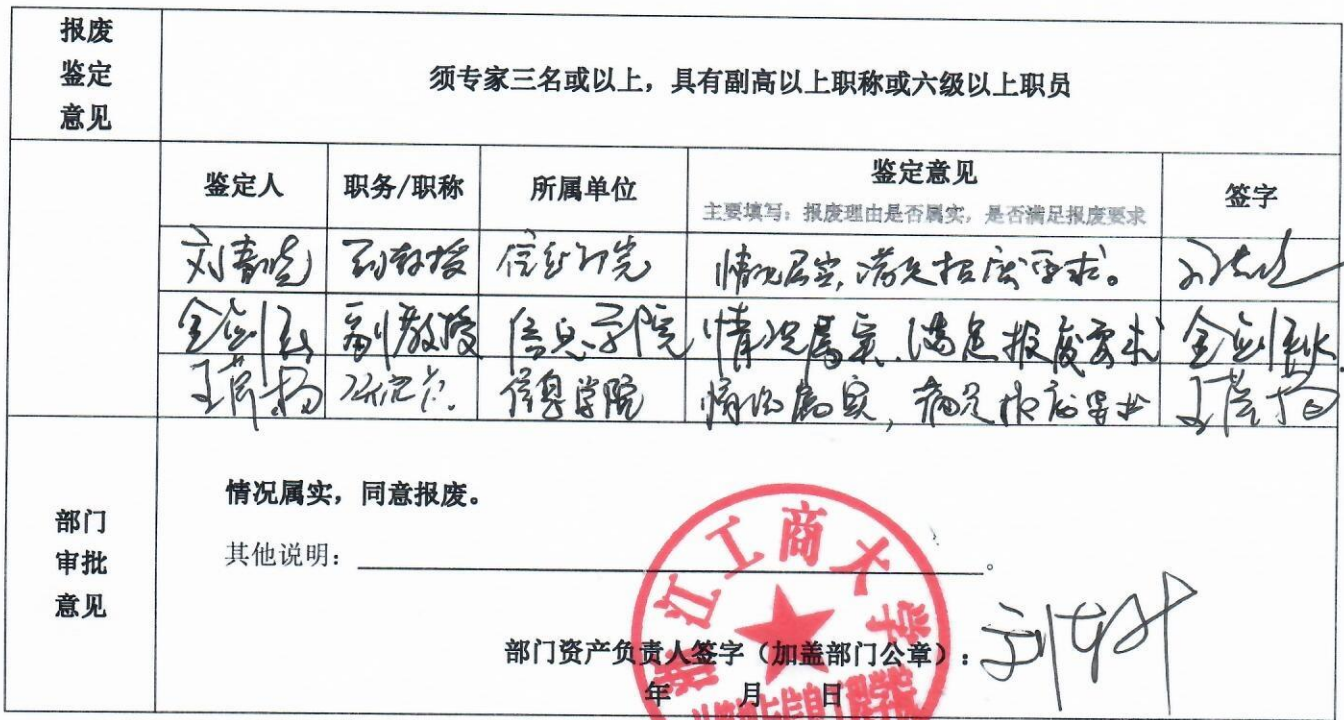 报废
鉴定
意见
须专家三名或以上，具有副高以上职称或六级以上职员
鉴定人 职务/职称 所属单位 鉴定意见 签字
主要填写：报废理由是否属实，是否满足报废要求
副教授 信息学院 情况属实，满足报废要求。
副教授 信息学院 情况属实，满足报废要求
信息学院 情况属实，满足报废要求
部门
审批
意见
情况属实，同意报废。
其他说明：。
部门资产负责人签字（加盖部门公章）：
年 月 日
浙江工商大学